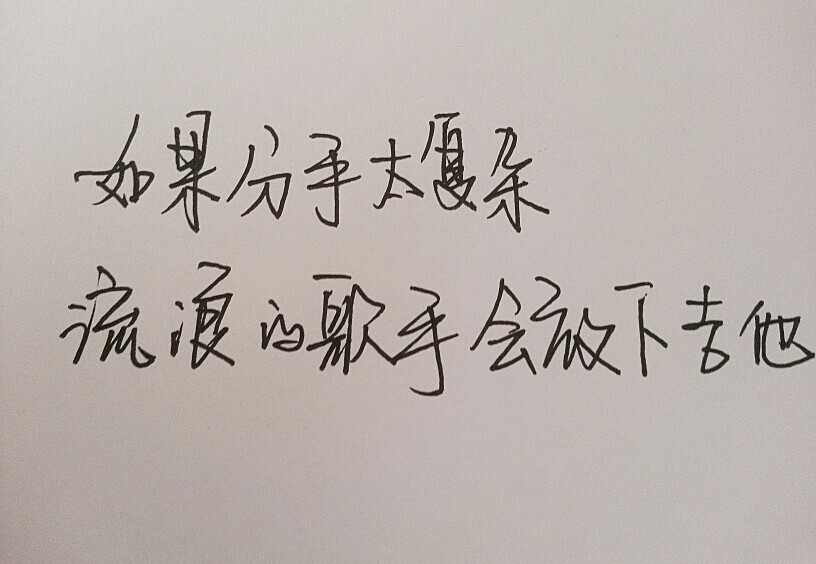 如果分手太复杂
流浪的歌手会放下吉他